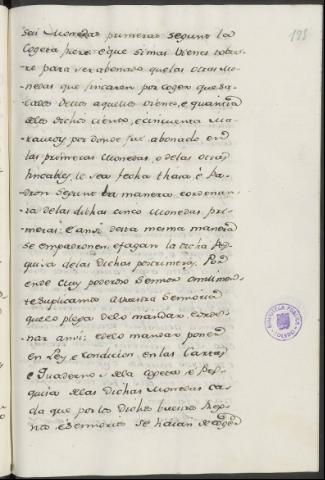 123
sas Monedas primeras segunt la
Cogeta fiere é que si mas vienes obie-
re para ser abonado que las otras Mo-
nedas que fincaren por coger que sa-
cados dellos aquellos viénes, é quantia
dellos dichos ciento, é cinquenta Ma-
ravedis por donde fué abonado en
las primeras Monedas, ó de las otras
fincables, le sea fecha thasa é Pa-
dron segunt la manera é ordenan-
za de las dichas cinco Monedas pri-
meras: é ansi desta mesma manera
se empadronen é fagan la dicha Pes-
quisa de las dichas postrimeras. Por
ende Muy poderoso Señor omilmen-
te suplicamos á vuestra Señoria
que lo plega de lo mandar é orde-
nar ansi: é de lo mandar poner
en Ley é condicion en las Cartas
é Quaderno de la Cogeta é Pes-
quisa de las dichas Monedas ca-
da que por los dichos vuestros Reg-
nos é Señorios se haian de coger
BIBLIOTECA PUBLICA
TOLEDO